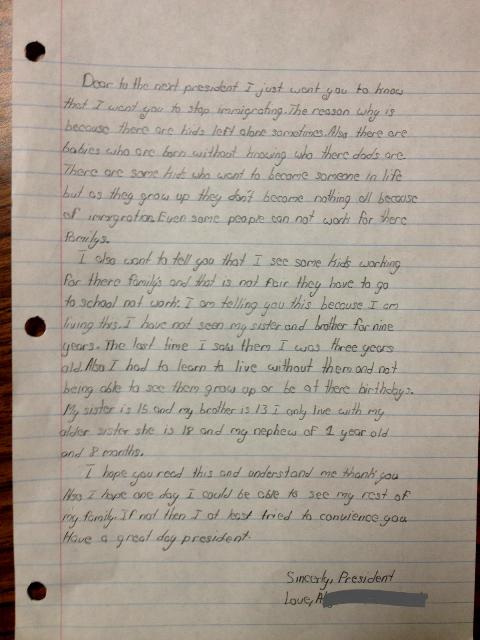 Dear to the next president I just want you to know
that I want you to stop immigrating. The reason why is
because there are kids left alone sometimes. Also there are
babies who are born without knowing who there dads are.
There are some kids who want to become someone in life
but as they grow up they don't become nothing all because
of immigration. Even some people can not work for there
familys.
I also want to tell you that I see some kids working
for there family's and that is not fair they have to go
to school not work. I am telling you this because I am
living this. I have not seen my sister and brother for nine
years. The last time I saw them I was three years
old. Also I had to learn to live without them and not
being able to see them grow up or be at there birthdays.
My sister is 15 and my brother is 13 i only live with my
older sister she is 18 and my nephew of 1 year old
and 8 months.
I hope you read this and understand me thank you
Also I hope one day I could be able to see my rest of
my family. If not then I at least tried to convience you
Have a great day president.
Sincerly, President
Love, A